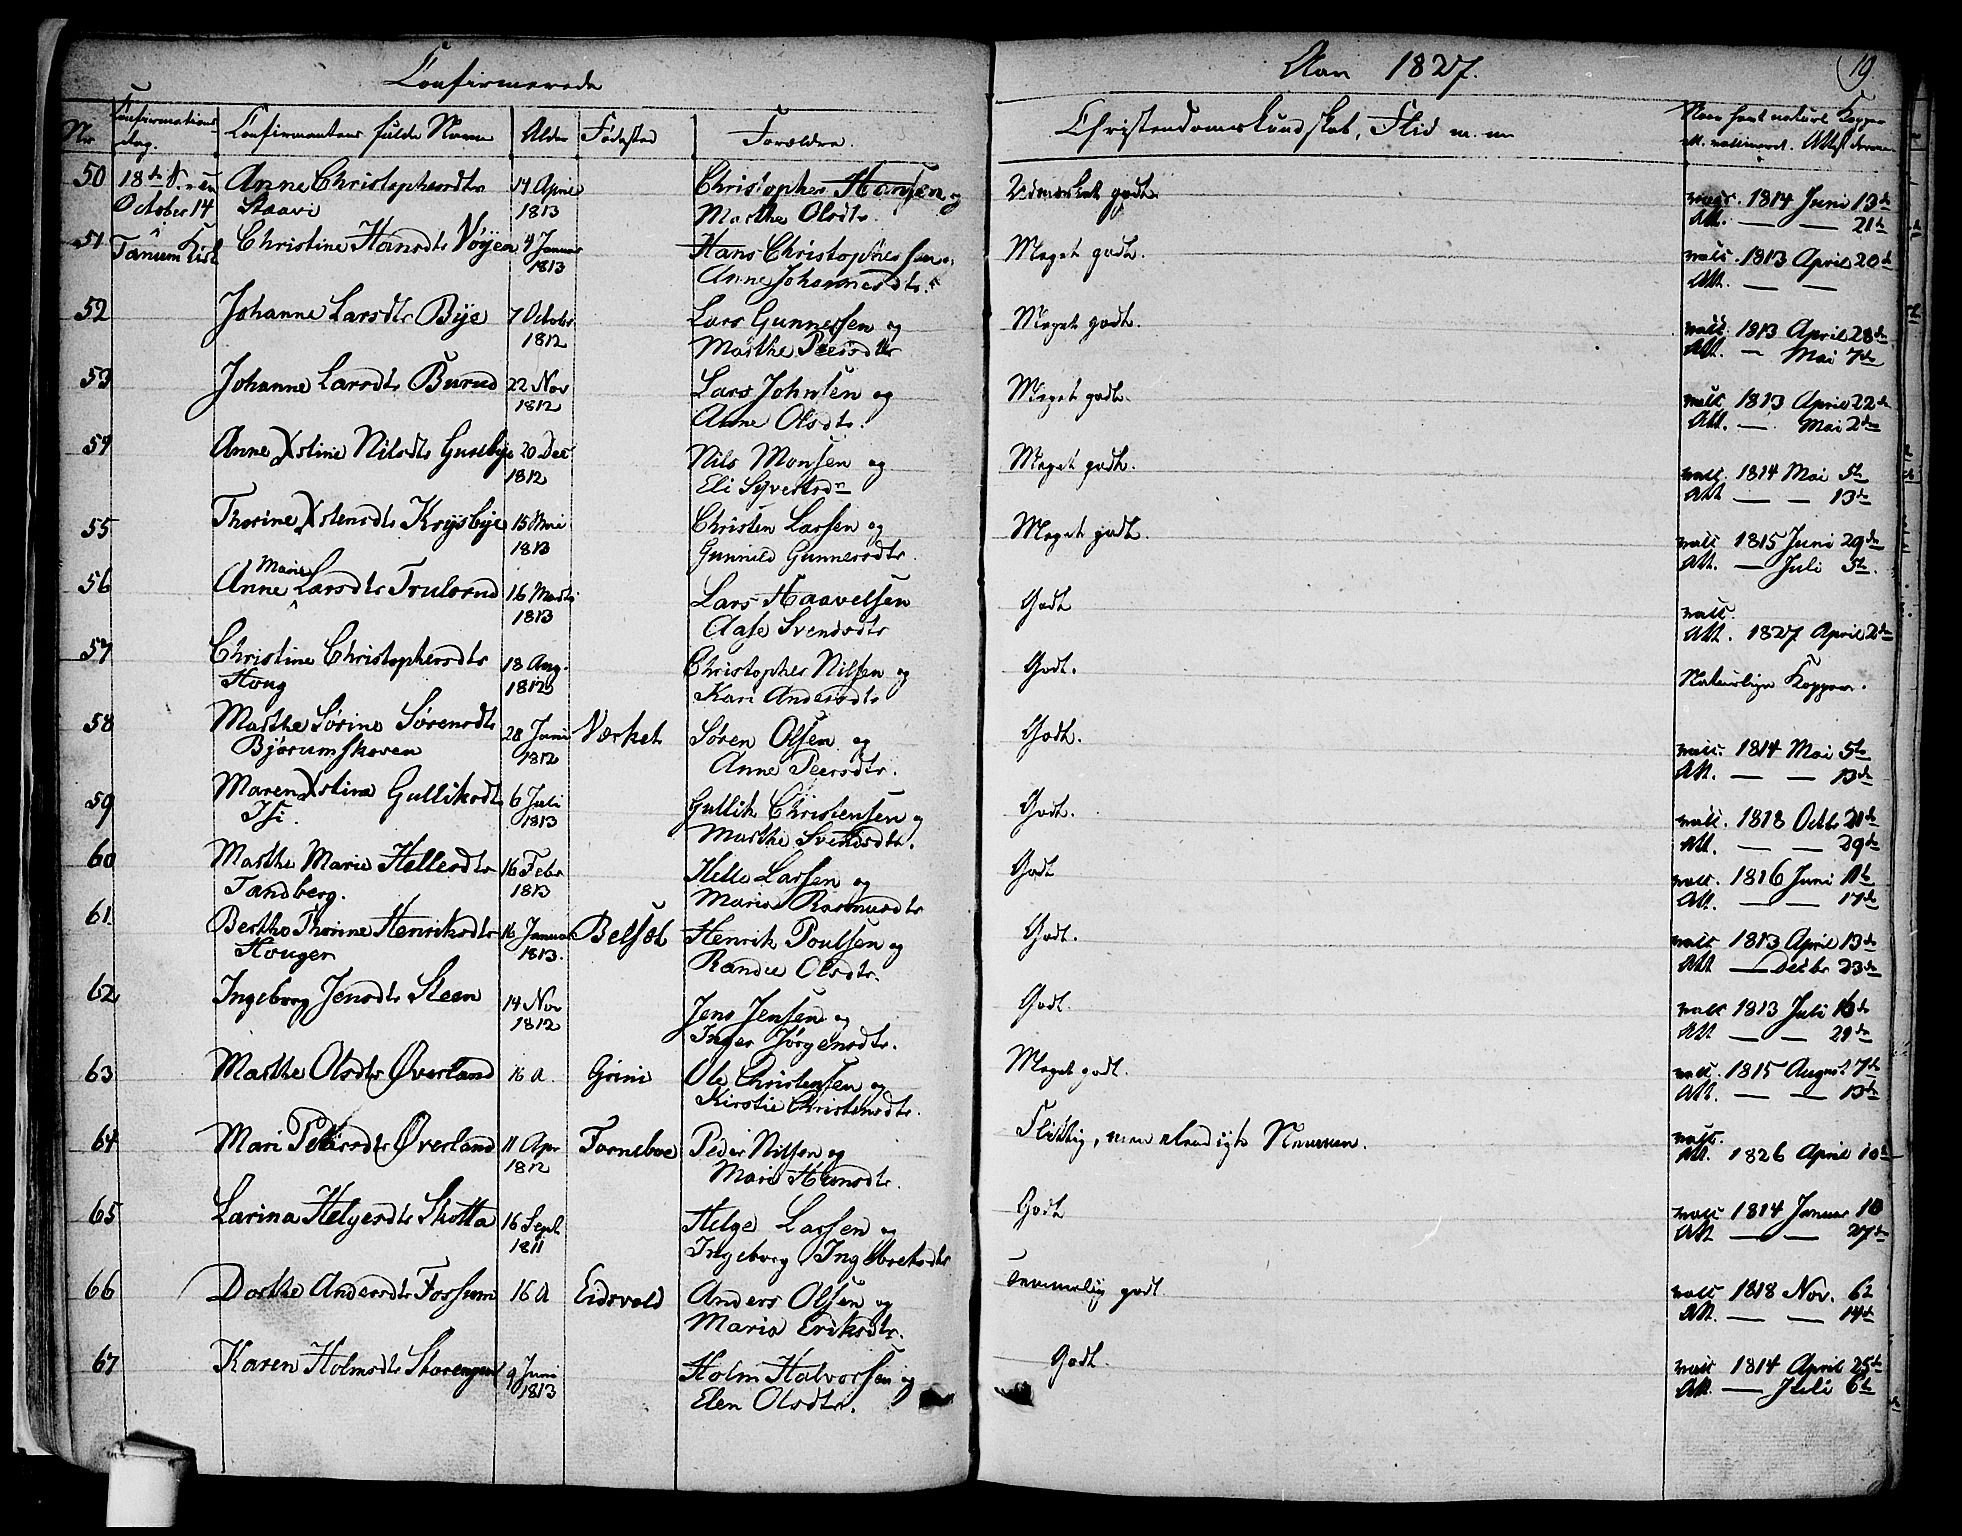 Confirmerede
Aar 1827.
19
Nr
Confirmations-
dag.
Confirmantens fulde Navn
Alder
Fødested
Forældre.
Christendomskundskab, Flid m. m.
Naar havt naturl. Kopper
el. vaccineret. Attest derom
50 18de S. e. Tr. Anne Christophersdtr 14 April Christopher Hansen og Udmærket godt. vacc. 1814 Juni 13de
October 14 Staavi 1813 Marthe Olsdtr. Att. — — 21de
51 Tanum Kirk Christine Hansdtr Vøyen 4 Januar Hans Christophersen og Meget godt. vacc. 1813 April 20de
1813 Anne Johannesdtr. Att. — —
52 Johanne Larsdtr Bye 7 Octobr Lars Gunnersen og Meget godt. vacc. 1813 April 28de
1812 Marthe Peersdtr Att. — Mai 7de
53 Johanne Larsdtr Burud 22 Nov Lars Johnsen og Meget godt. vacc. 1813 April 22de
1812 Anne Olsdtr. Att. — Mai 2den
54 Anne Xstine Nilsdtr Gusebye 20 Dec Nils Monsen og Meget godt. vacc. 1814 Mai 5te
1812 Eli Syvertsdr Att — — 13de
55 Thorine Xstensdtr Krysbye 15 Mai Christen Larsen og Meget godt. vacc. 1815 Juni 29de
1813 Gunnild Gunnersdtr. Att. — Juli 5te
56 Anne Marie Larsdtr Trulsrud 16 Marts Lars Haavelsen Godt vacc.
1813 Aase Svendsdtr Att. 1827 April 2de
57 Christine Christophersdtr 18 Aug. Christopher Nilsen og Godt. Naturlige Kopper.
Houg 1812 Kari Andersdtr
58 Marthe Sørine Sørensdtr 28 Juni Værket Søren Olsen og Godt. vacc. 1814 Mai 5te
Bjørumskoven 1812 Anne Peersdtr. Att. — — 13de
59 Maren Xstine Gulliksdtr 6 Juli Gullik Christensen og Godt. vacc. 1818 Octb 21de
Isi. 1813 Marthe Svendsdtr. Att. — — 29de
60 Marthe Marie Hellesdtr 16 Febr Helle Larsen og Godt vacc. 1816 Juni 11te
Tandberg. 1813 Maria Rasmusdtr Att. — — 17de
61. Berthe Thorine Henriksdtr 16 Januar Belset Henrik Poulsen og Godt. vacc 1813 April 13de
Houger 1813. Randie Olsdtr. Att — Decbr 23de
62 Ingeborg Jensdtr Steen 14 Nov Jens Jensen og Godt. vacc 1813 Juli 16de
1812 Inger Jørgensdtr. Att — 29de
63 Marthe Olsdtr Øverland 16 A. Grini Ole Christensen og Meget godt. vacc. 1815 August 7de
Kirstie Christensdtr. Att. — — 13de
64 Mari Pedersdtr Øverland 11 Apr Forneboe Peder Nilsen og Flittig, men Nemme. vacc.
1812 Mari Hansdtr. Att. 1826 April 10de
65 Larina Helgesdtr Skotta 16 Sept Helge Larsen og Godt vacc 1814 Januar 10
1811 Ingeborg Ingebretsdtr Att — — 27de
66 Dorthe Andersdtr Fossum 16 A Eidsvold Anders Olsen og Temmelig godt vacc 1818 Nov. 6te
Maria Eriksdtr. Att. — — 14de
67 Karen Holmsdtr Storengen 9 Juni Holm Halvorsen og Godt. vacc 1814 April 25de
1813 Elen Olsdtr. Att. — Juli 6te